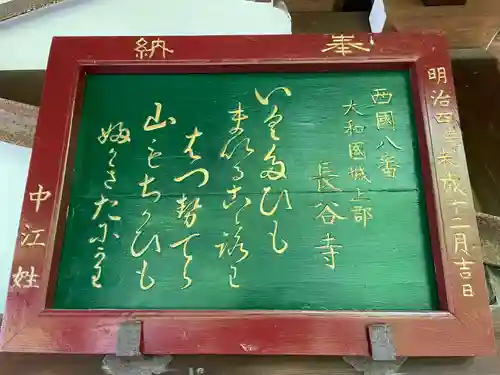 奉納
明治四辛未歳十二月吉日
西國八番
大和國城上郡
長谷寺
いく多ひも
まいるこゝ路は
はつ勢てら
山もちかひも
婦かきたに可わ
中江姓